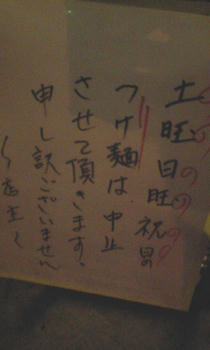 土旺日旺祝日の
つけ麺は中止
させて頂きます。
申し訳ございません
〜店主〜